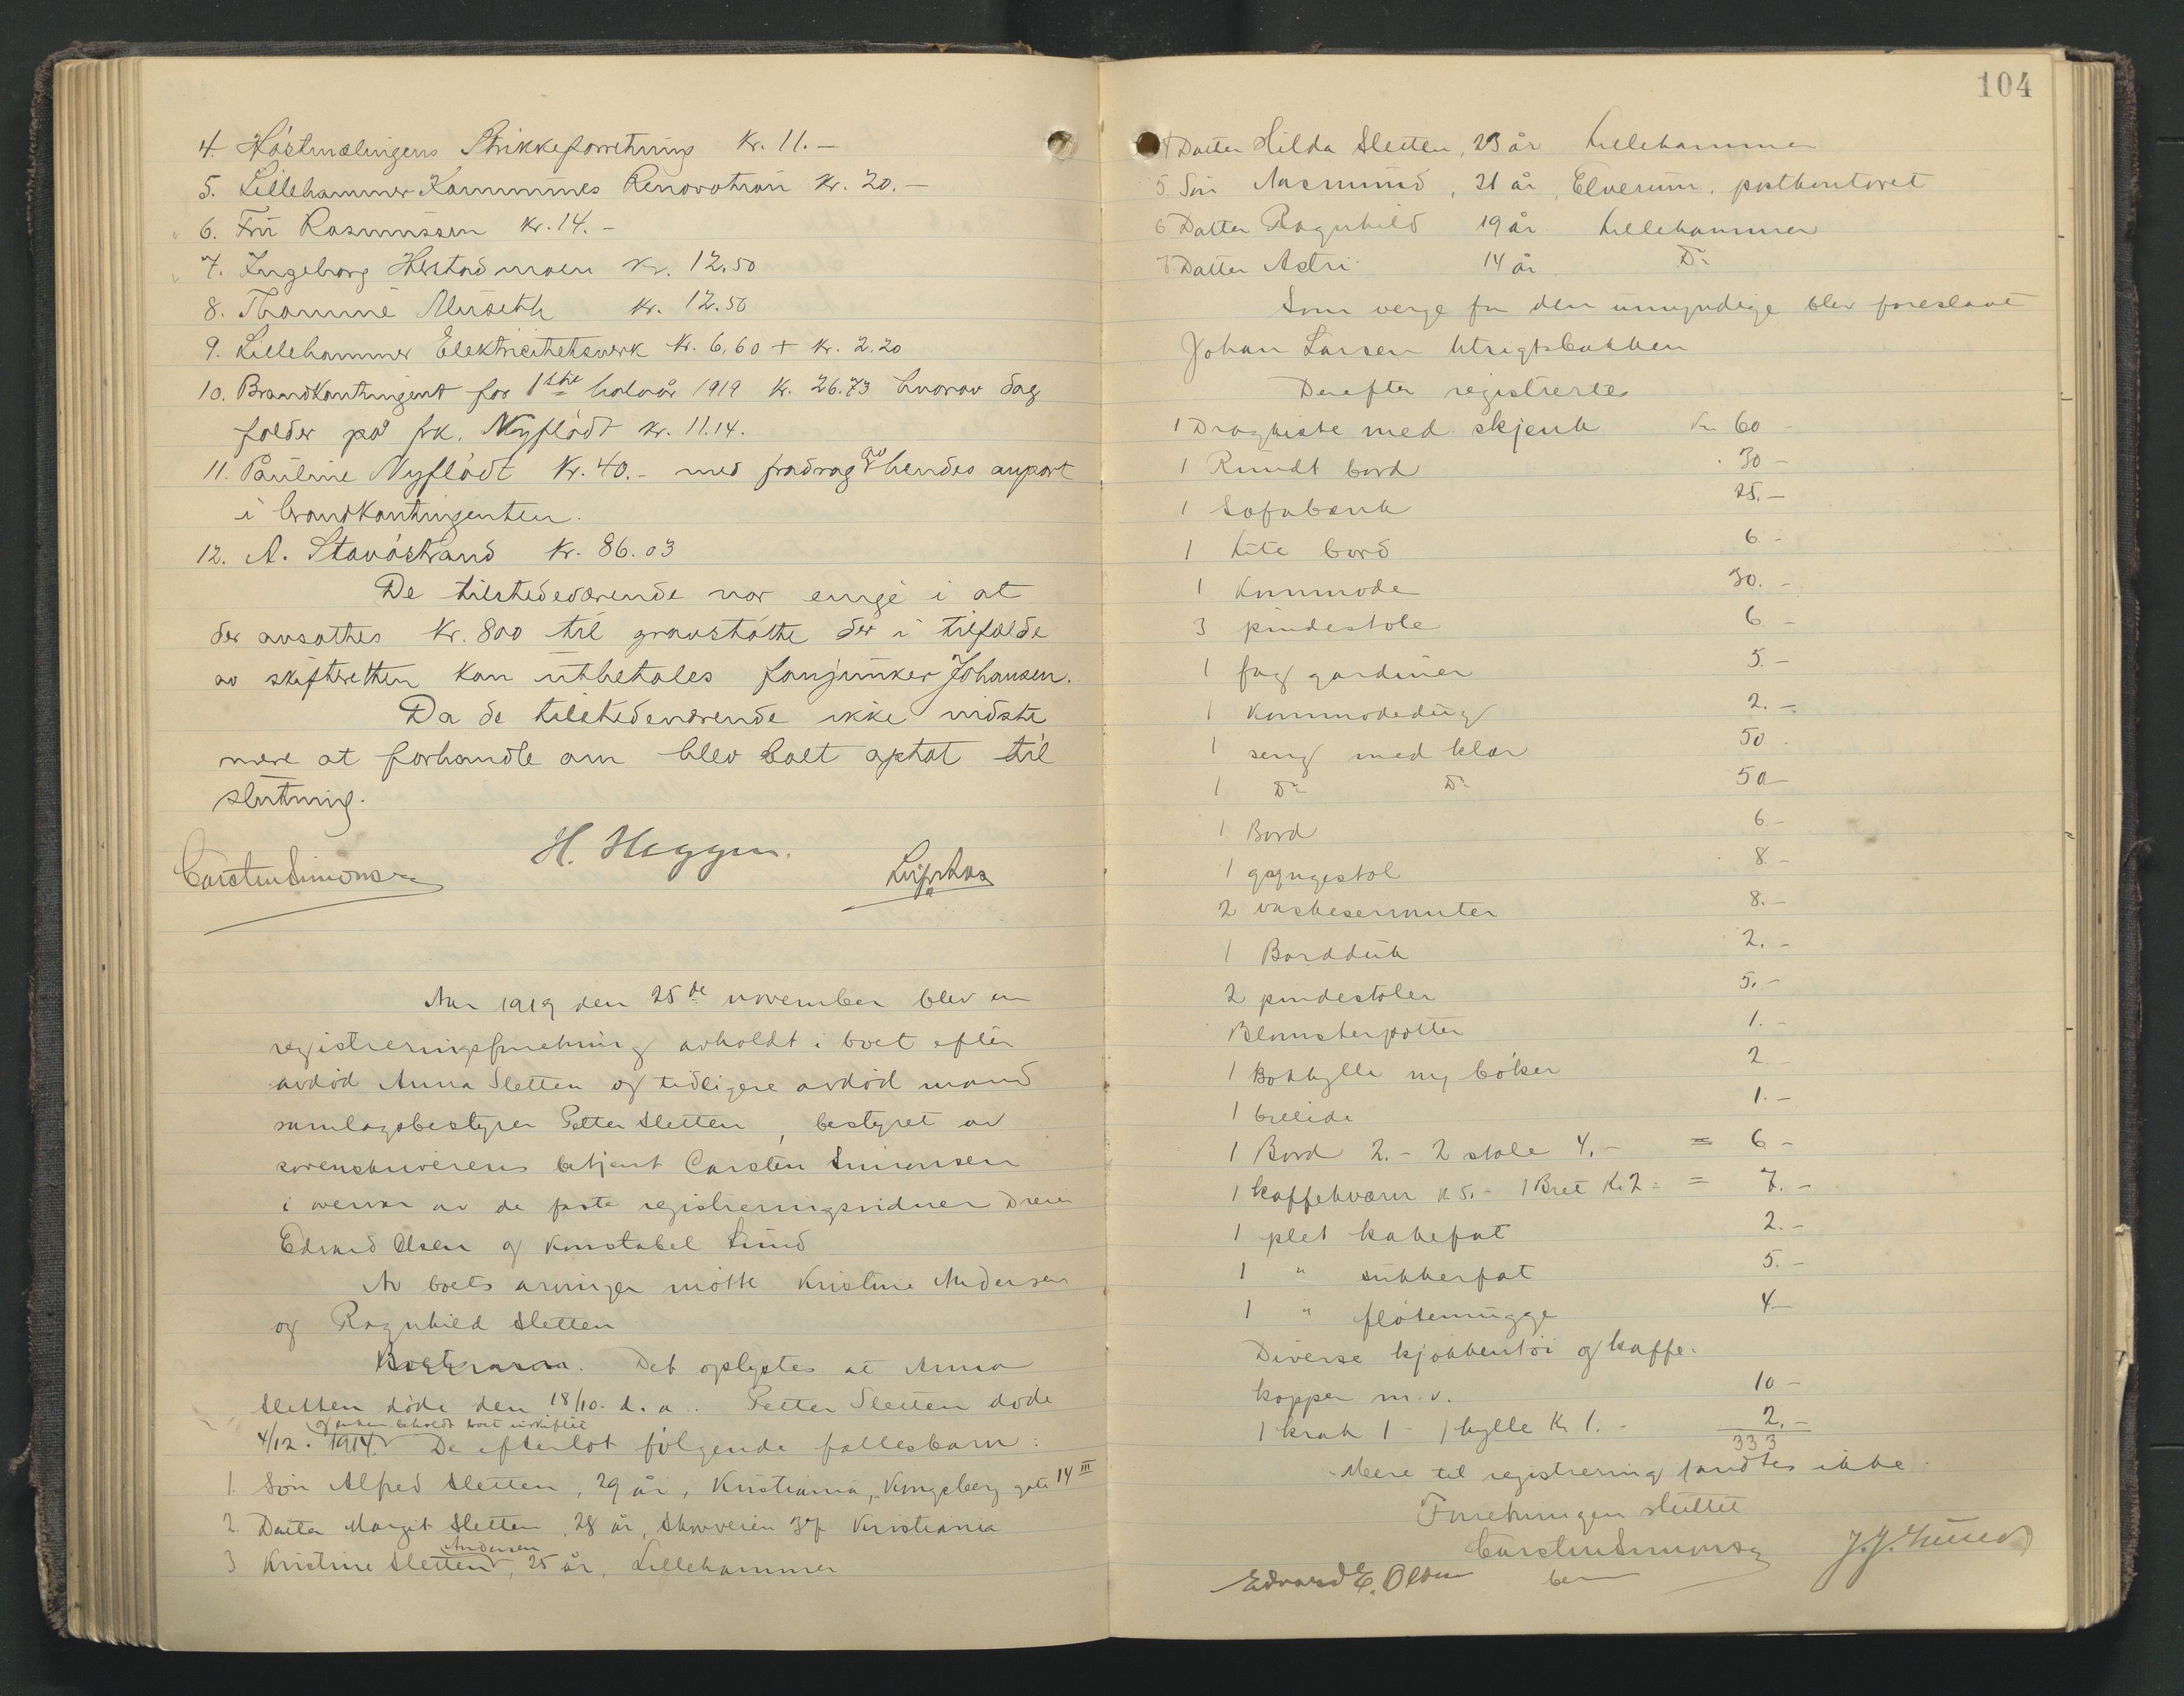 4. Høstmælingens Strikkeforretning Kr. 11.-
5. Lillehammer Kommunes Renovation Kr. 20.-
6. Fru Rasmussen Kr. 14.-
7. Ingeborg Hestadmoen Kr. 12,50
8. Thomine Museth Kr. 12.50
9. Lillehammer Elektricitetsverk Kr. 6,60 + Kr. 2.20
10. Brandkontingent for 1ste halvår 1919 Kr. 26.73 hvorav dog
falder på frk. Nyflødt Kr. 11.14.
11. Pauline Nyflødt Kr. 40.- med fradrag av hendes anpart
i brandkontingenten.
12. A. Stavåstrand Kr. 86.03
De tilstedeværende var enige i at
der avsattes Kr. 800 til gravstøtte der i tilfælde
av skifteretten kan utbetales fanjunker Johansen.
Da de tilstedeværende ikke vidste
mere at forhandle om blev boet optat til
slutning.
Carsten Simonsen H. Heggen.
Aar 1919 den 25de november blev en
registreringsforretning avholdt i boet efter
avdød Anna Sletten og tidligere avdød mand
samlagsbestyrer Petter Sletten, bestyret av
sorenskriverens betjent Carsten Simonsen
i nærvær av de faste registreringsvidner Dreier
Edvard Olsen og Konstabel Lund
Av boets arvinger møtte Kristine Andersen
og Ragnhild Sletten
Det oplystes at Anna
Sletten døde den 18/10. d. a. Petter Sletten døde
og enken beholdt boet uskiftet
4/12. 1914. De efterlot følgende fællesbarn:
1. Søn Alfred Sletten, 29 år, Kristiania, Kongsberg gate 14 III
2. Datter Margit Sletten, 28 år, Skovveien 37 Kristiania
3 Kristine Sletten Andersen, 25 år, Lillehammer
104
4 Datter Hilda Sletten, 23 år Lillehammer
5. Søn Aasmund, 21 år, Elverum, postkontoret
6 Datter Ragnhild 19 år Lillehammer
7 Datter Astri 14 år Do
Som verge for den umyndige blev foreslaat
Johan Larsen Utsigtsbakken
Derefter registrertes
1 Dragkiste med skjenk Kr 60 -
1 Rundt bord 30 -
1 Sofabænk 25.-
1 Lite bord 6 -
1 Kommode 30. -
3 pindestole 6 -
1 fag gardiner 5. -
1 Kommodedug 2. -
1 seng med klær 50 -
1 Do Do 50 -
1 Bord 6 -
1 gyngestol 8. -
2 vaskeservanter 8. -
1 Bordduk 2. -
2 pindestoler 5. -
Blomsterpotter 1. -
1 Bokhylle og bøker 2 -
1 1. -
1 Bord 2. - 2 stole 4. - = 6 -
1 kaffekværn K 5. - 1 Bret Kr 2 - = 7. -
1 plet kakefat 2. -
1 " sukkerfat 5. -
1 " fløtemugge 4 -
Diverse kjøkkentøi og kaffe-
kopper m.v. 10 -
1 krak 1 - 1 hylle Kr 1. - 2. -
333
Mere til registrering fandtes ikke.
Forretningen sluttet
Carsten Simonsen J. J. Lund
Edvard E. Olsen